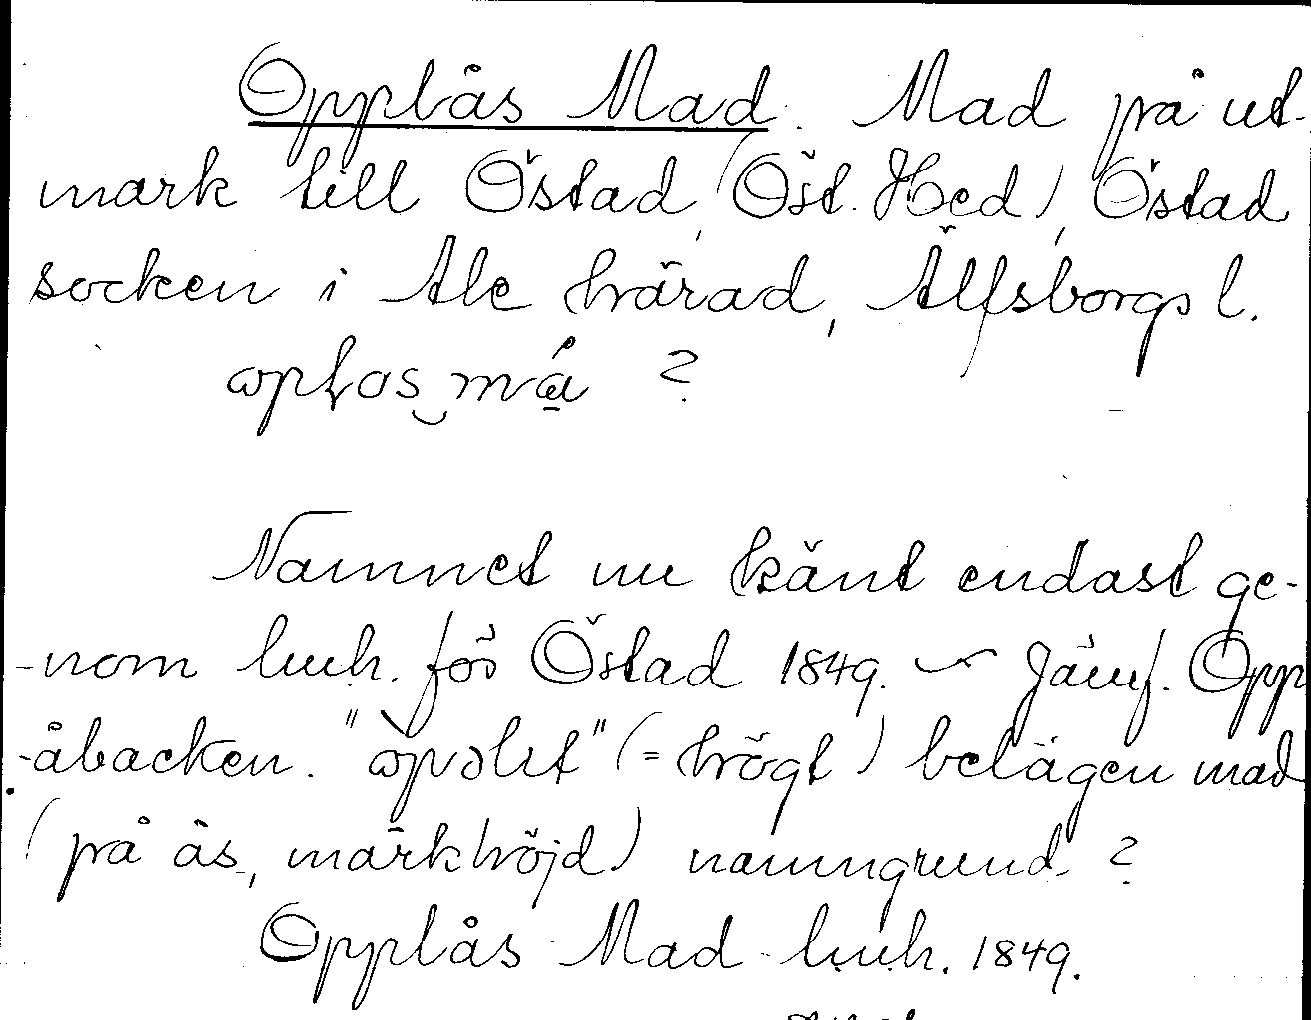 Opplås Mad. Mad på ut-
mark till Östad (Öst. Hed), Östad
socken i Ale härad, Älfsborgs l.
?
Namnet nu känt endast ge-
-nom luih. för Östad 1849. Jämf. Opp
-åbacken. " " (= högt) belägen mad
(på ås, markhöjd) namngrund?
Opplås Mad luih. 1849.